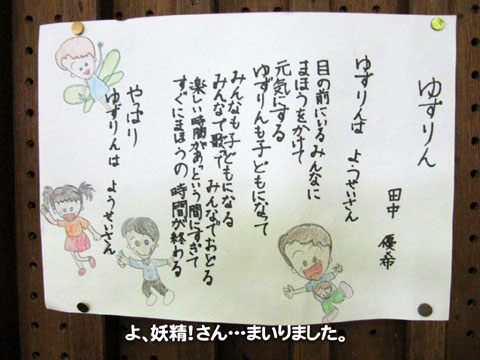 ゆずりん
田中 優希
ゆずりんは ようせいさん
目の前にいるみんなに
まほうをかけて
元気にする
ゆずりんも子どもになって
みんなも子どもになる
みんなで歌って みんなでおどる
楽しい時間があっという間にすぎて
すぐにまほうの時間が終わる
やはり
ゆずりんは ようせいさん
よ、妖精!さん…まいりました。